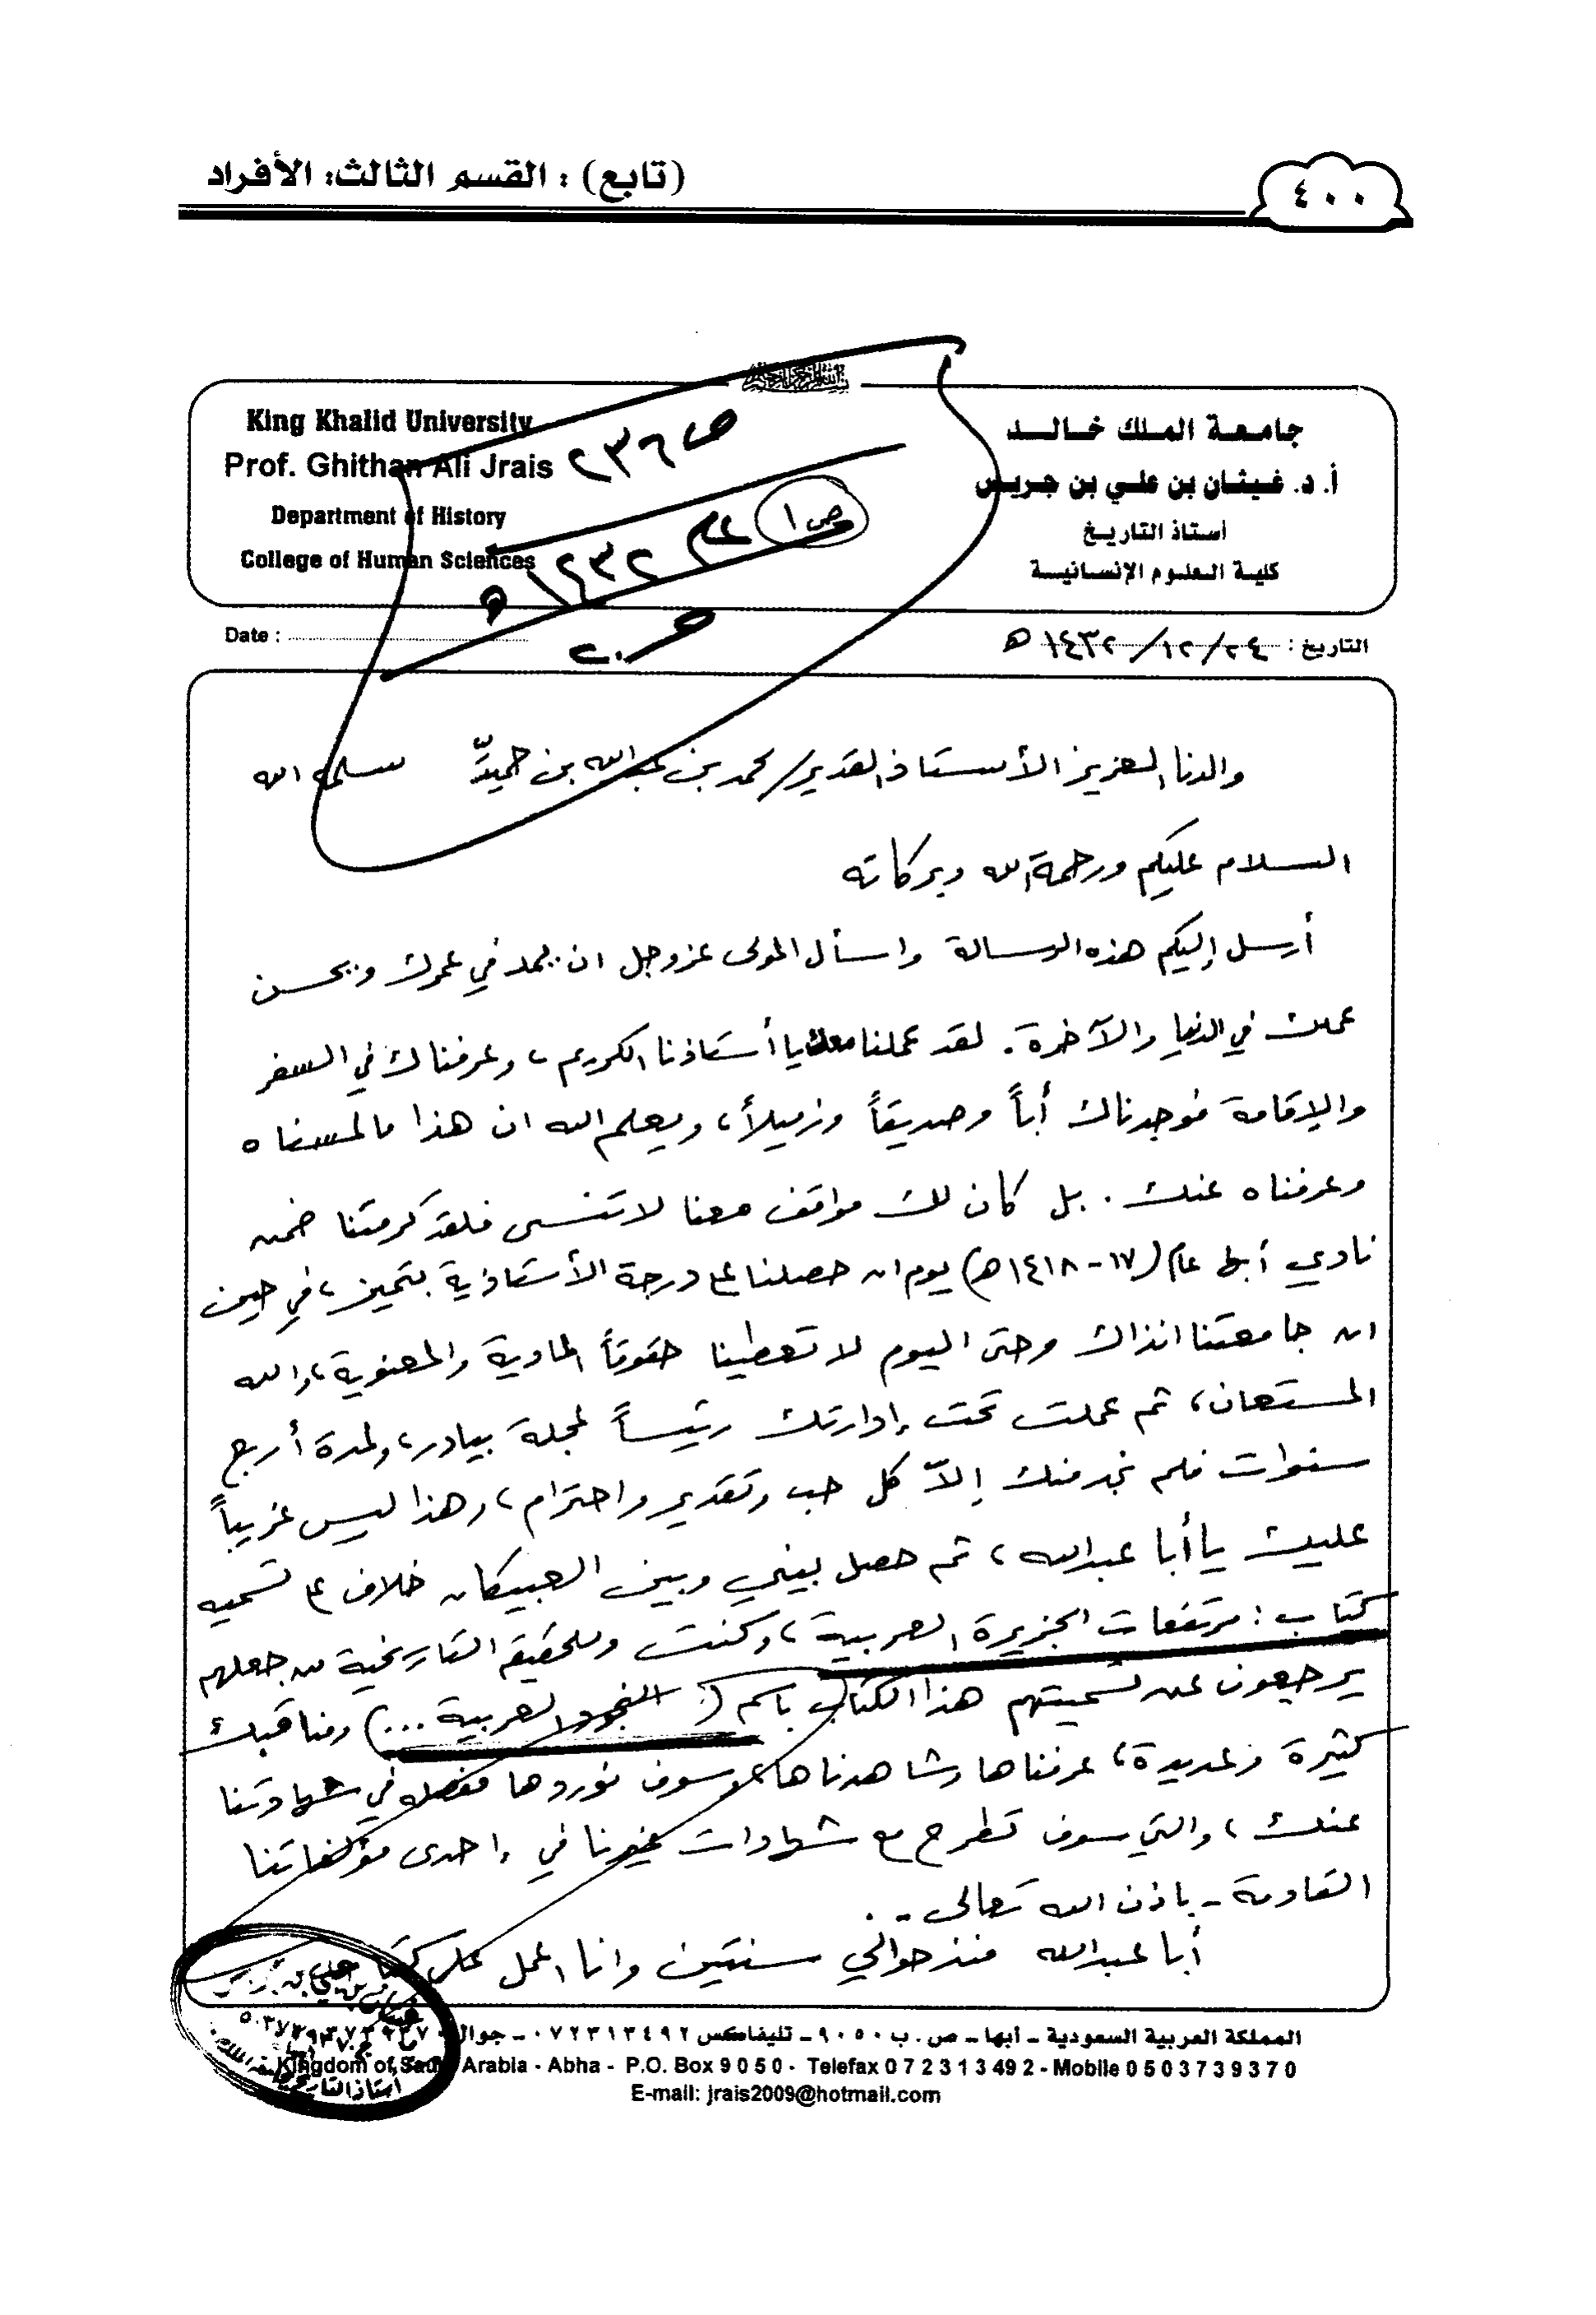 ٤٠٠
(تابع) : القسم الثالث: الأفراد
King Khalid University
Prof. Ghithan Ali Jrais
Department of History
College of Human Sciences
جامعة الملك خالد
أ. د. غيثان بن علي بن جريس
أستاذ التاريخ
كلية العلوم الإنسانية
ص ٢٣٦
ص ١
١٤٣٢ هـ
Date :
التاريخ : ٢٤/١٢/١٤٣٢ هـ
والدنا العزيز الأستاذ القدير/ محمد بن عبدالله بن حميّد سلمه الله
السلام عليكم ورحمة الله وبركاته
أرسل إليكم هذه الرسالة واسأل المولى عزوجل ان يمد في عمرك ويحسن
عملك في الدنيا والآخرة. لقد عملنا معك يا أستاذنا الكريم، وعرفناك في السفر
والإقامة فوجدناك أباً وصديقاً وزميلاً، ويعلم الله ان هذا ما لمسناه
وعرفناه عنك. بل كان لك مواقف معنا لا تنسى فلقد كرمتنا ضمن
نادي أبها عام (١٧-١٤١٨هـ) يوم ان حصلنا على درجة الأستاذية بتميز، في حين
ان جامعتنا انذاك وحتى اليوم لا تعطينا حقوقاً المادية والمعنوية، والله
المستعان، ثم عملت تحت إدارتك رئيساً لمجلة بيادر، ولمدة أربع
سنوات فلم نجد منك إلاّ كل حب وتقدير واحترام، وهذا ليس غريباً
عليك يا أبا عبدالله، ثم حصل بيني وبين العبيكان خلاف على تسميه
كتاب: مرتفعات الجزيرة العربية، وكنت وللحقيقه التاريخية من جعلهم
يرجعون عن تسميتهم هذا الكتاب باسم (النجود العربية ...) ومناقبك
كثيرة وعديدة، عرفناها وشاهدناها، وسوف نوردها مفصله في شهادتنا
عنك، والتي سوف تطرح مع شهادات غيرنا في إحدى مؤلفاتنا
القادمة - باذن الله تعالى - .
أبا عبدالله منذ حوالي سنتين وانا اعمل على كتاب
المملكة العربية السعودية - أبها - ص. ب ٩٠٥٠ - تليفاكس ٠٧٢٣١٣٤٩٢ - جوال
Kingdom of Saudi Arabia - Abha - P.O. Box 9050 - Telefax 072313492 - Mobile 0503739370
E-mail: jrais2009@hotmail.com
أستاذ التاريخ